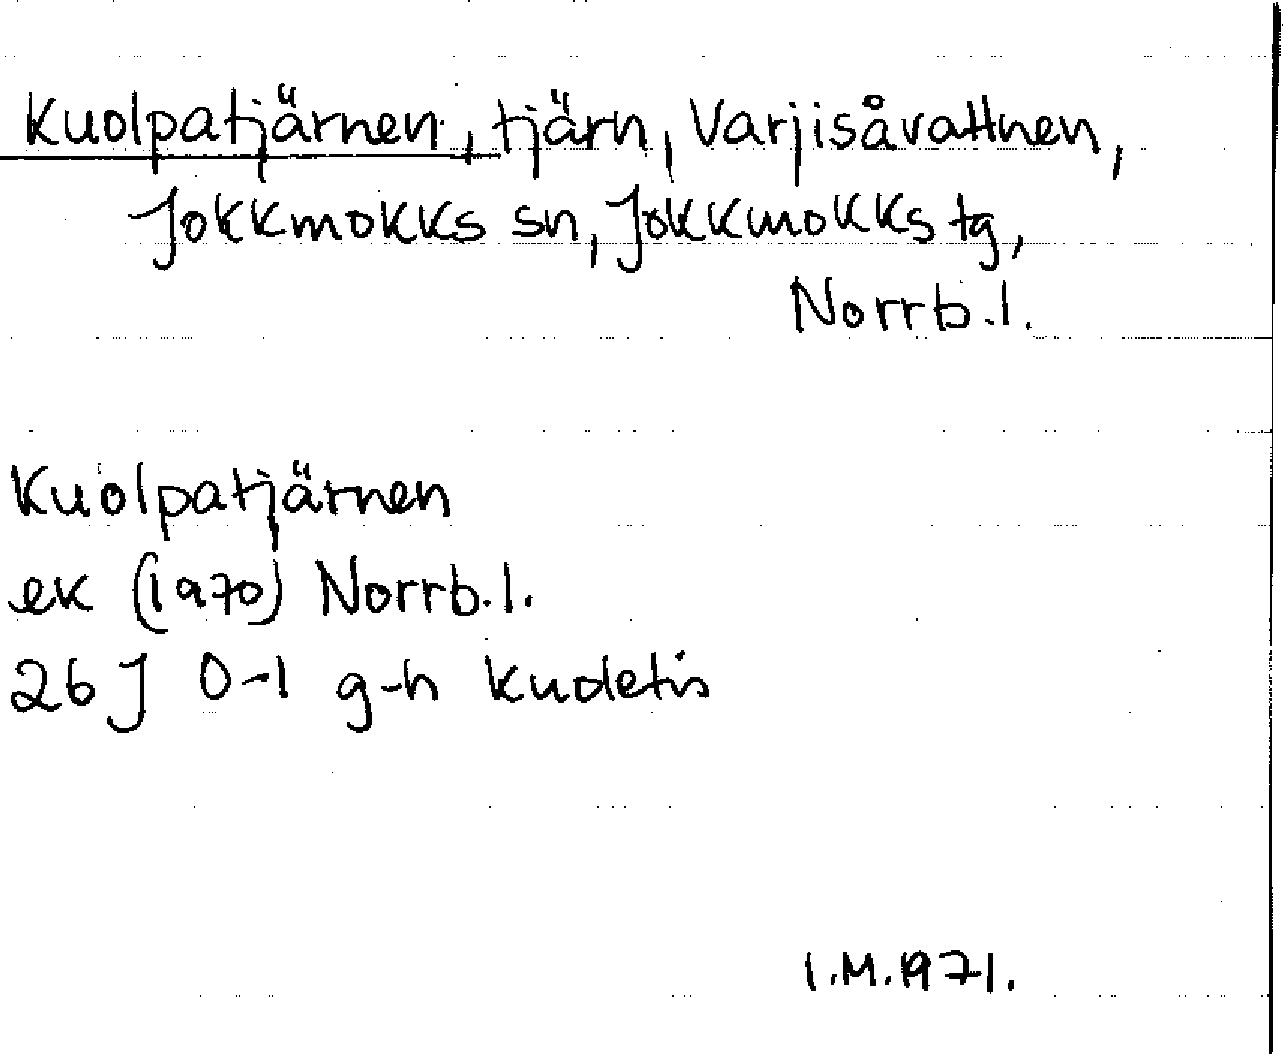 Kuolpatjärnen, tjärn, Varjisåvattnen,
Jokkmokks sn, Jokkmokks tg,
Norrb.l.
Kuolpatjärnen
ek (1970) Norrb.l.
26 J 0-1 g-h Kudetis
I.M.1971.